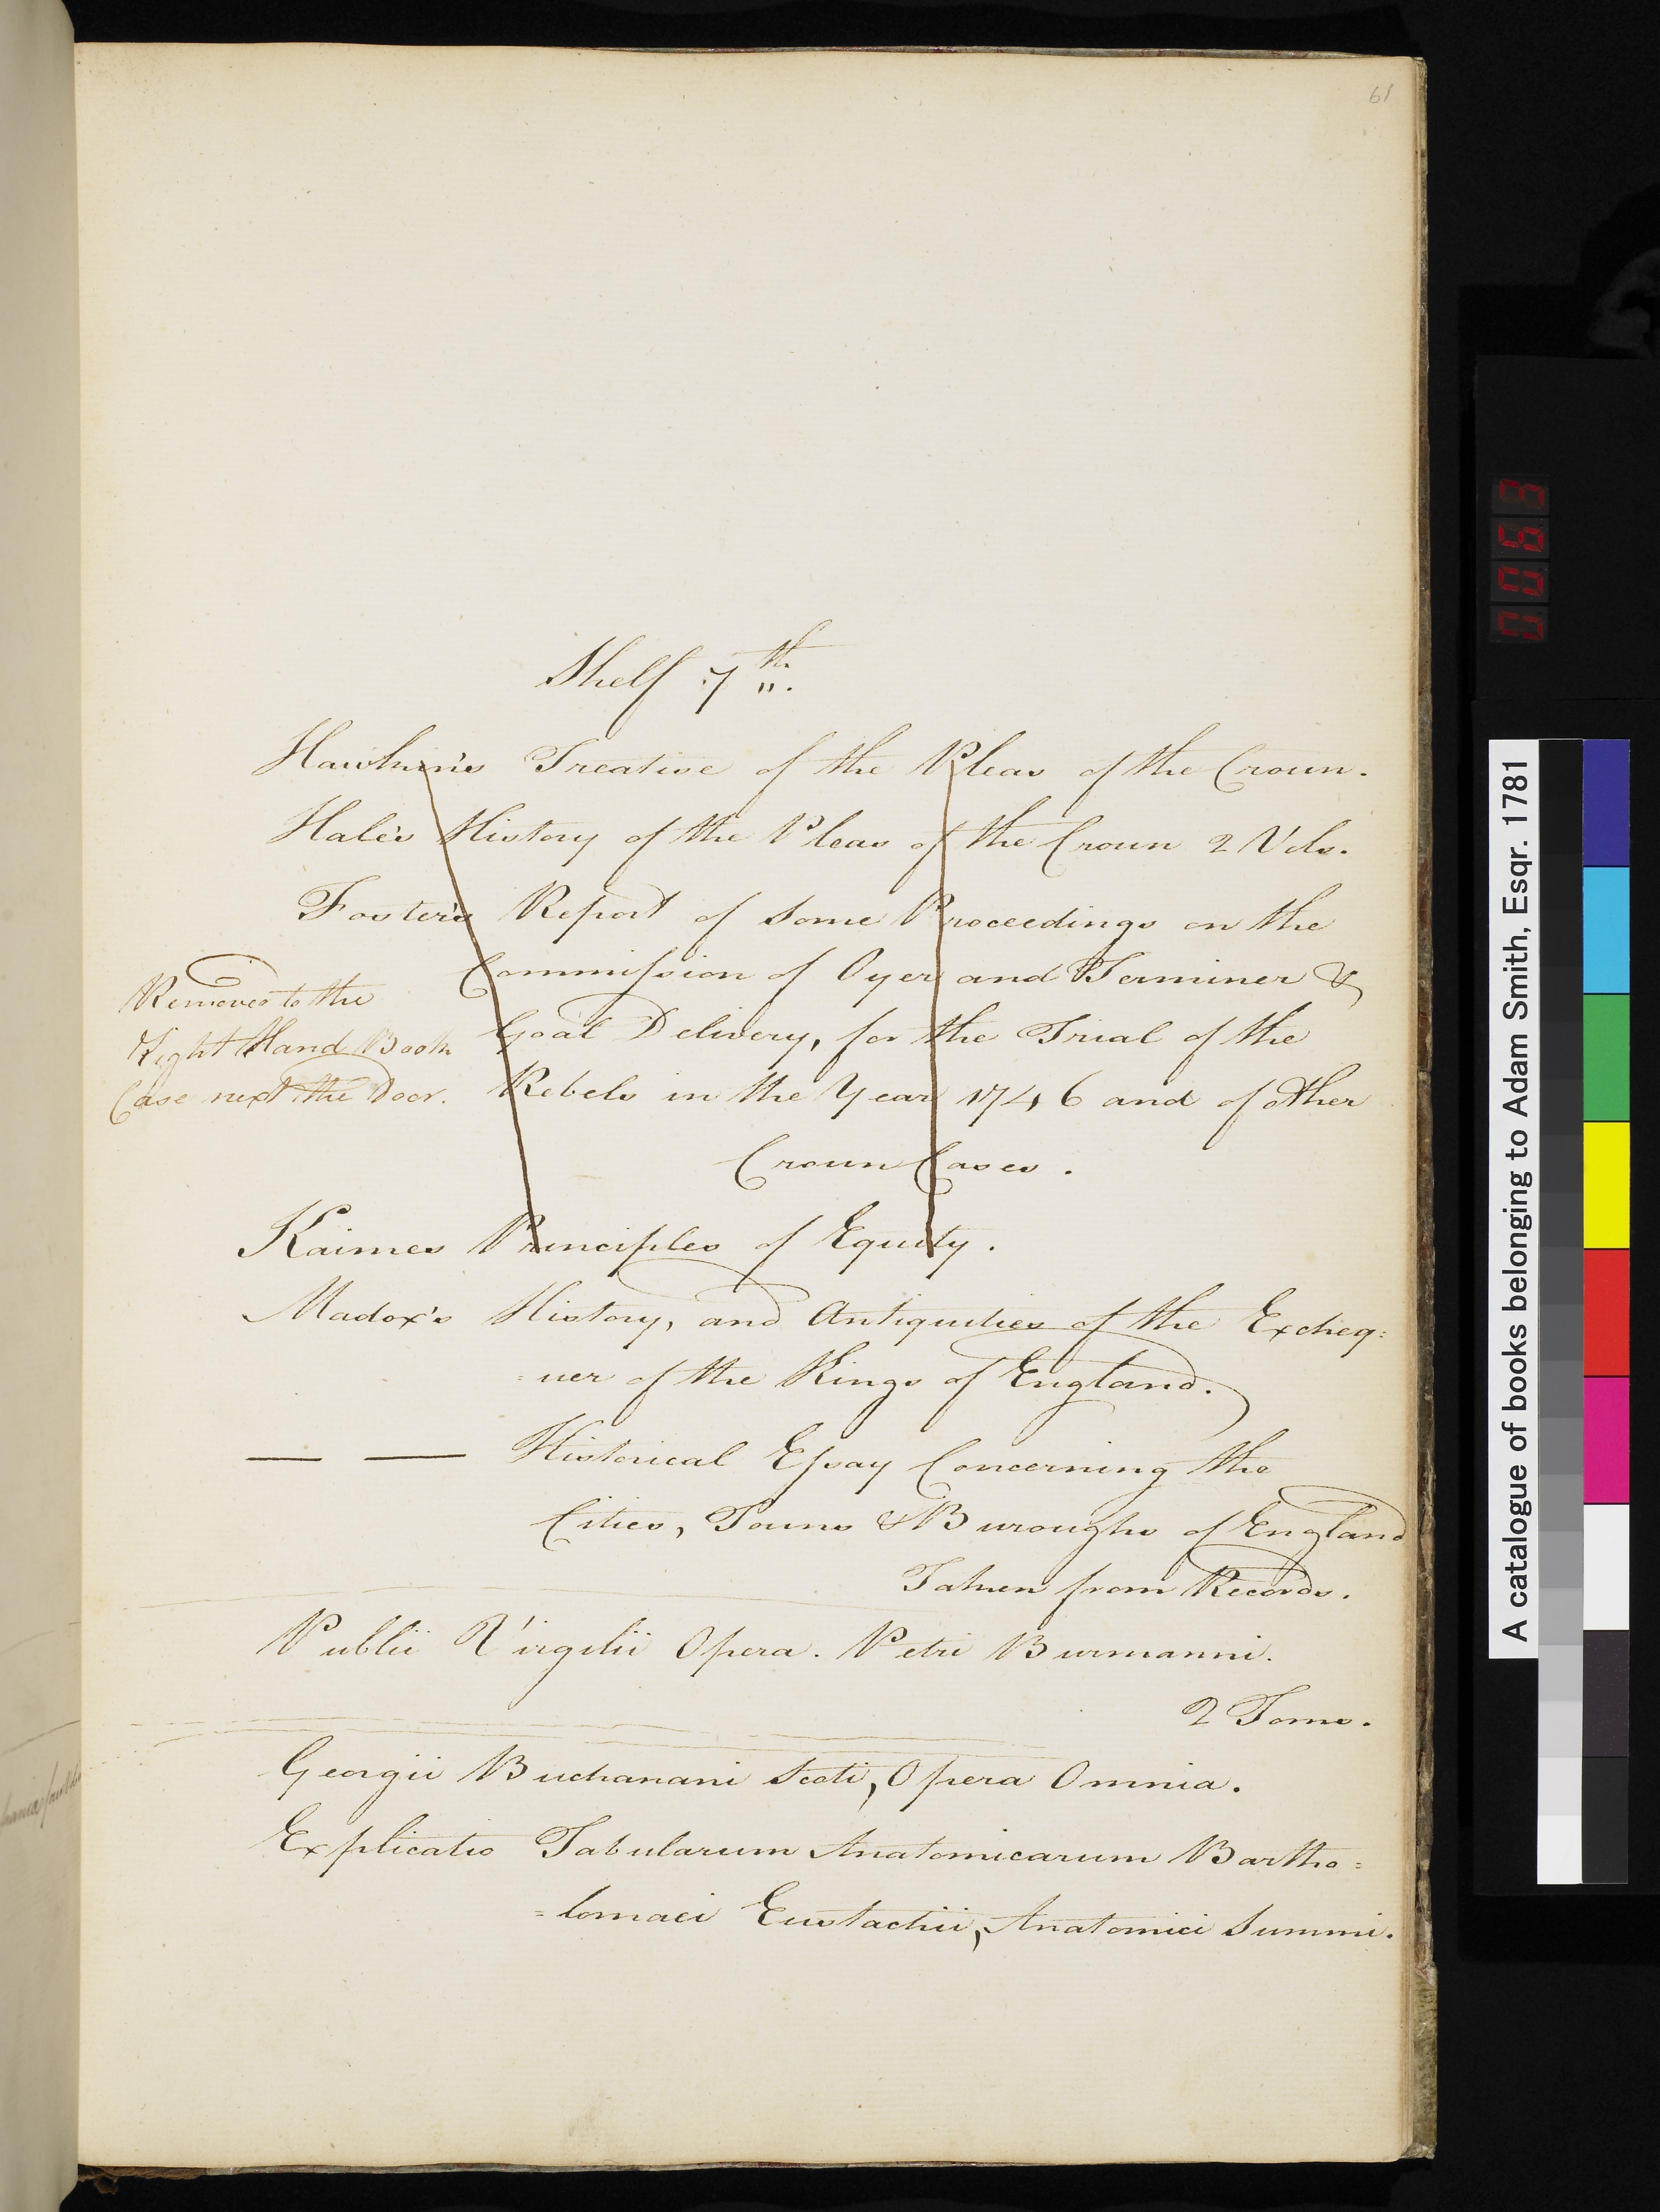 61
Shelf 7th.
Hawkin's Treatise of the Pleas of the Crown.
Hale's History of the Pleas of the Crown 2 Vols.
Foster's Report of some Proceedings on the
Commission of Oyer and Terminer &
Goal Delivery, for the Trial of the
Rebels in the Year 1746 and of other
Crown Cases.
Removed to the
Right Hand Book
Case next the Door.
Kaimes Principles of Equity.
Madox's History, and Antiquities of the Excheq=
=uer of the Kings of England.
— — Historical Essay Concerning the
Cities, Towns & Buroughs of England
Taken from Records.
Publii Virgilii Opera. Petri Burmanni.
2 Toms.
Georgii Buchanani Scoti, Opera Omnia.
Explicatio Tabularum Anatomicarum Bartho=
=lomaei Eustachii, Anatomici Summi.
0063
A catalogue of books belonging to Adam Smith, Esqr. 1781